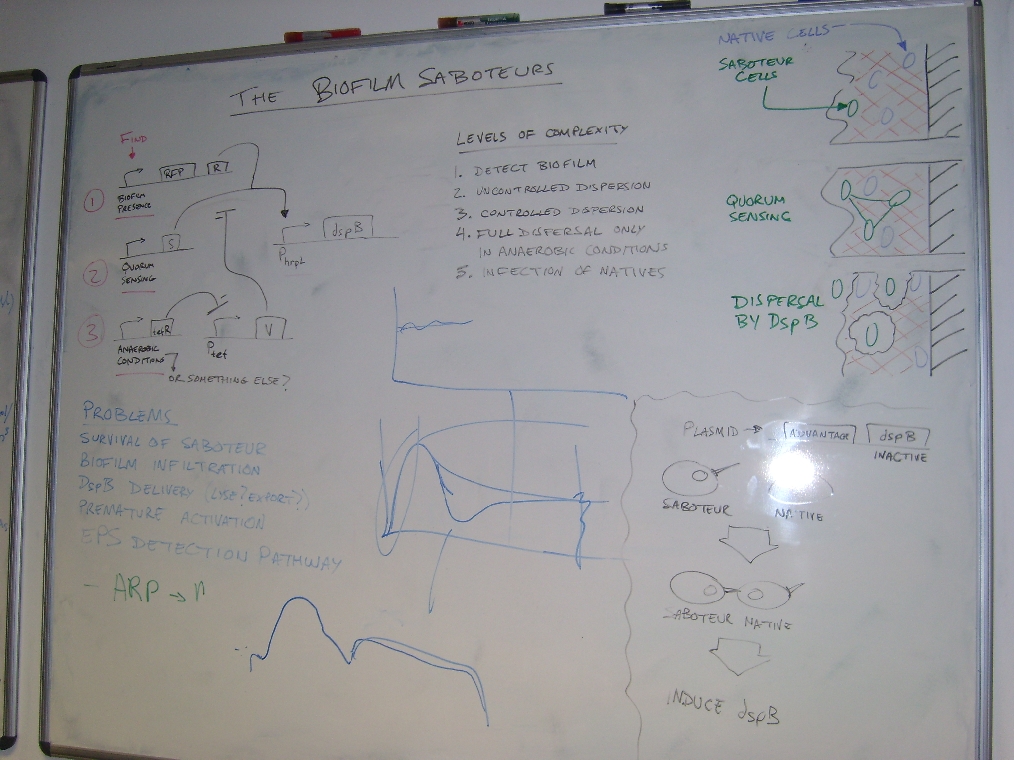 THE BIOFILM SABOTEURS
FIND
RFP R
1
BIOFILM
PRESENCE
S
dspB
PhrpL
2
QUORUM
SENSING
3
tetR
Ptet
V
ANAEROBIC
CONDITIONS
OR SOMETHING ELSE?
LEVELS OF COMPLEXITY
1. DETECT BIOFILM
2. UNCONTROLLED DISPERSION
3. CONTROLLED DISPERSION
4. FULL DISPERSAL ONLY
IN ANAEROBIC CONDITIONS
5. INFECTION OF NATIVES
NATIVE CELLS
SABOTEUR
CELLS
QUORUM
SENSING
DISPERSAL
BY DspB
PROBLEMS
SURVIVAL OF SABOTEUR
BIOFILM INFILTRATION
DspB DELIVERY (LYSE? EXPORT?)
PREMATURE ACTIVATION
EPS DETECTION PATHWAY
- ARP → n
PLASMID → ADVANTAGE dspB
INACTIVE
SABOTEUR NATIVE
SABOTEUR NATIVE
INDUCE dspB